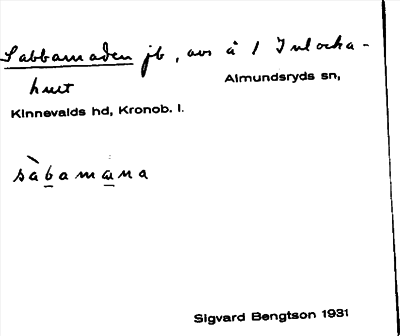 Sabbamaden jb, avs å 1 Inlocka-
hult
Almundsryds sn,
Kinnevalds hd, Kronob. l.
sàbamana
Sigvard Bengtson 1931